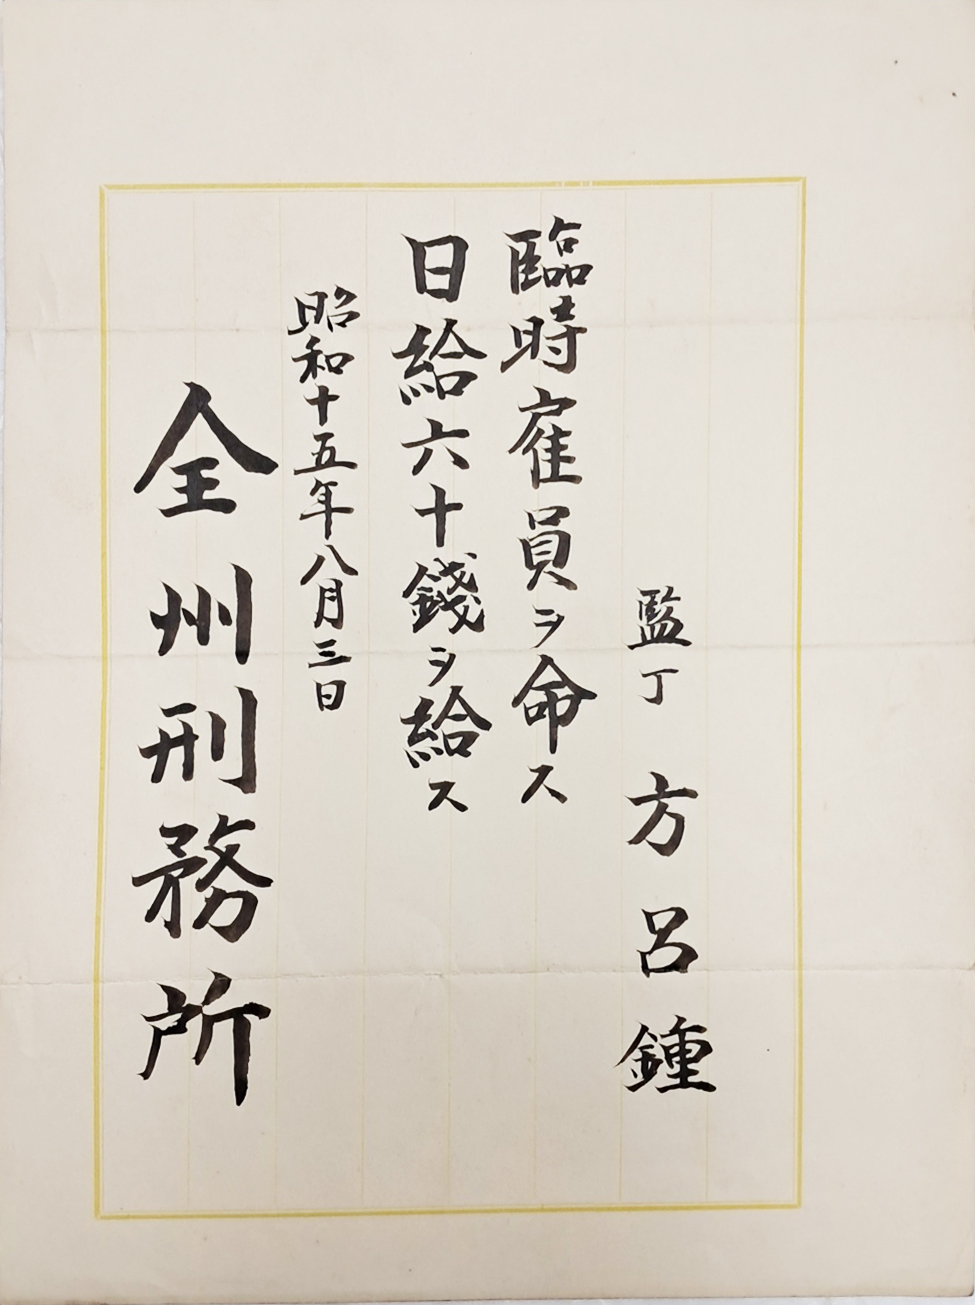 監丁 方呂鍾
臨時雇員ヲ命ス
日給六十錢ヲ給ス
昭和十五年八月三日
全州刑務所